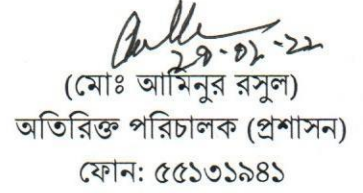 ২০-০২-২২
(মোঃ আমিনুর রসুল)
অতিরিক্ত পরিচালক (প্রশাসন)
ফোন: ৫৫১৩১৯৪১